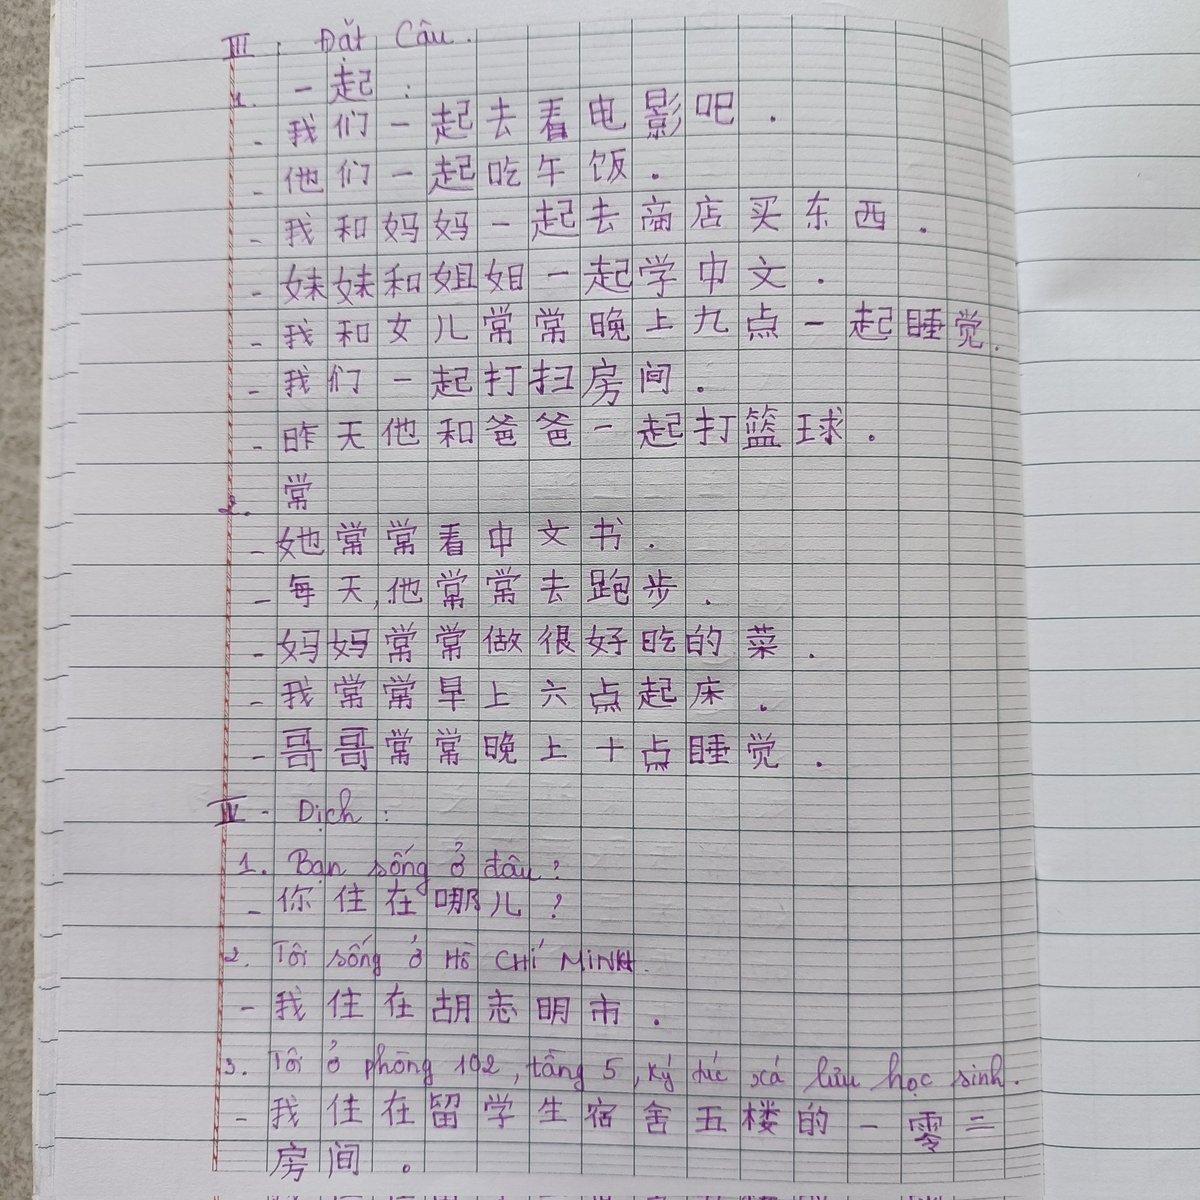 III. Đặt Câu.
1. 一起:
- 我们一起去看电影吧.
- 他们一起吃午饭.
- 我和妈妈一起去商店买东西.
- 妹妹和姐姐一起学中文.
- 我和女儿常常晚上九点一起睡觉.
- 我们一起打扫房间.
- 昨天他和爸爸一起打篮球.
2. 常
- 她常常看中文书.
- 每天,他常常去跑步.
- 妈妈常常做很好吃的菜.
- 我常常早上六点起床.
- 哥哥常常晚上十点睡觉.
IV - Dịch:
1. Bạn sống ở đâu?
- 你住在哪儿?
2. Tôi sống ở Hồ CHÍ MINH.
- 我住在胡志明市.
3. Tôi ở phòng 102, tầng 5, ký túc xá lưu học sinh.
- 我住在留学生宿舍五楼的一零二
房间。